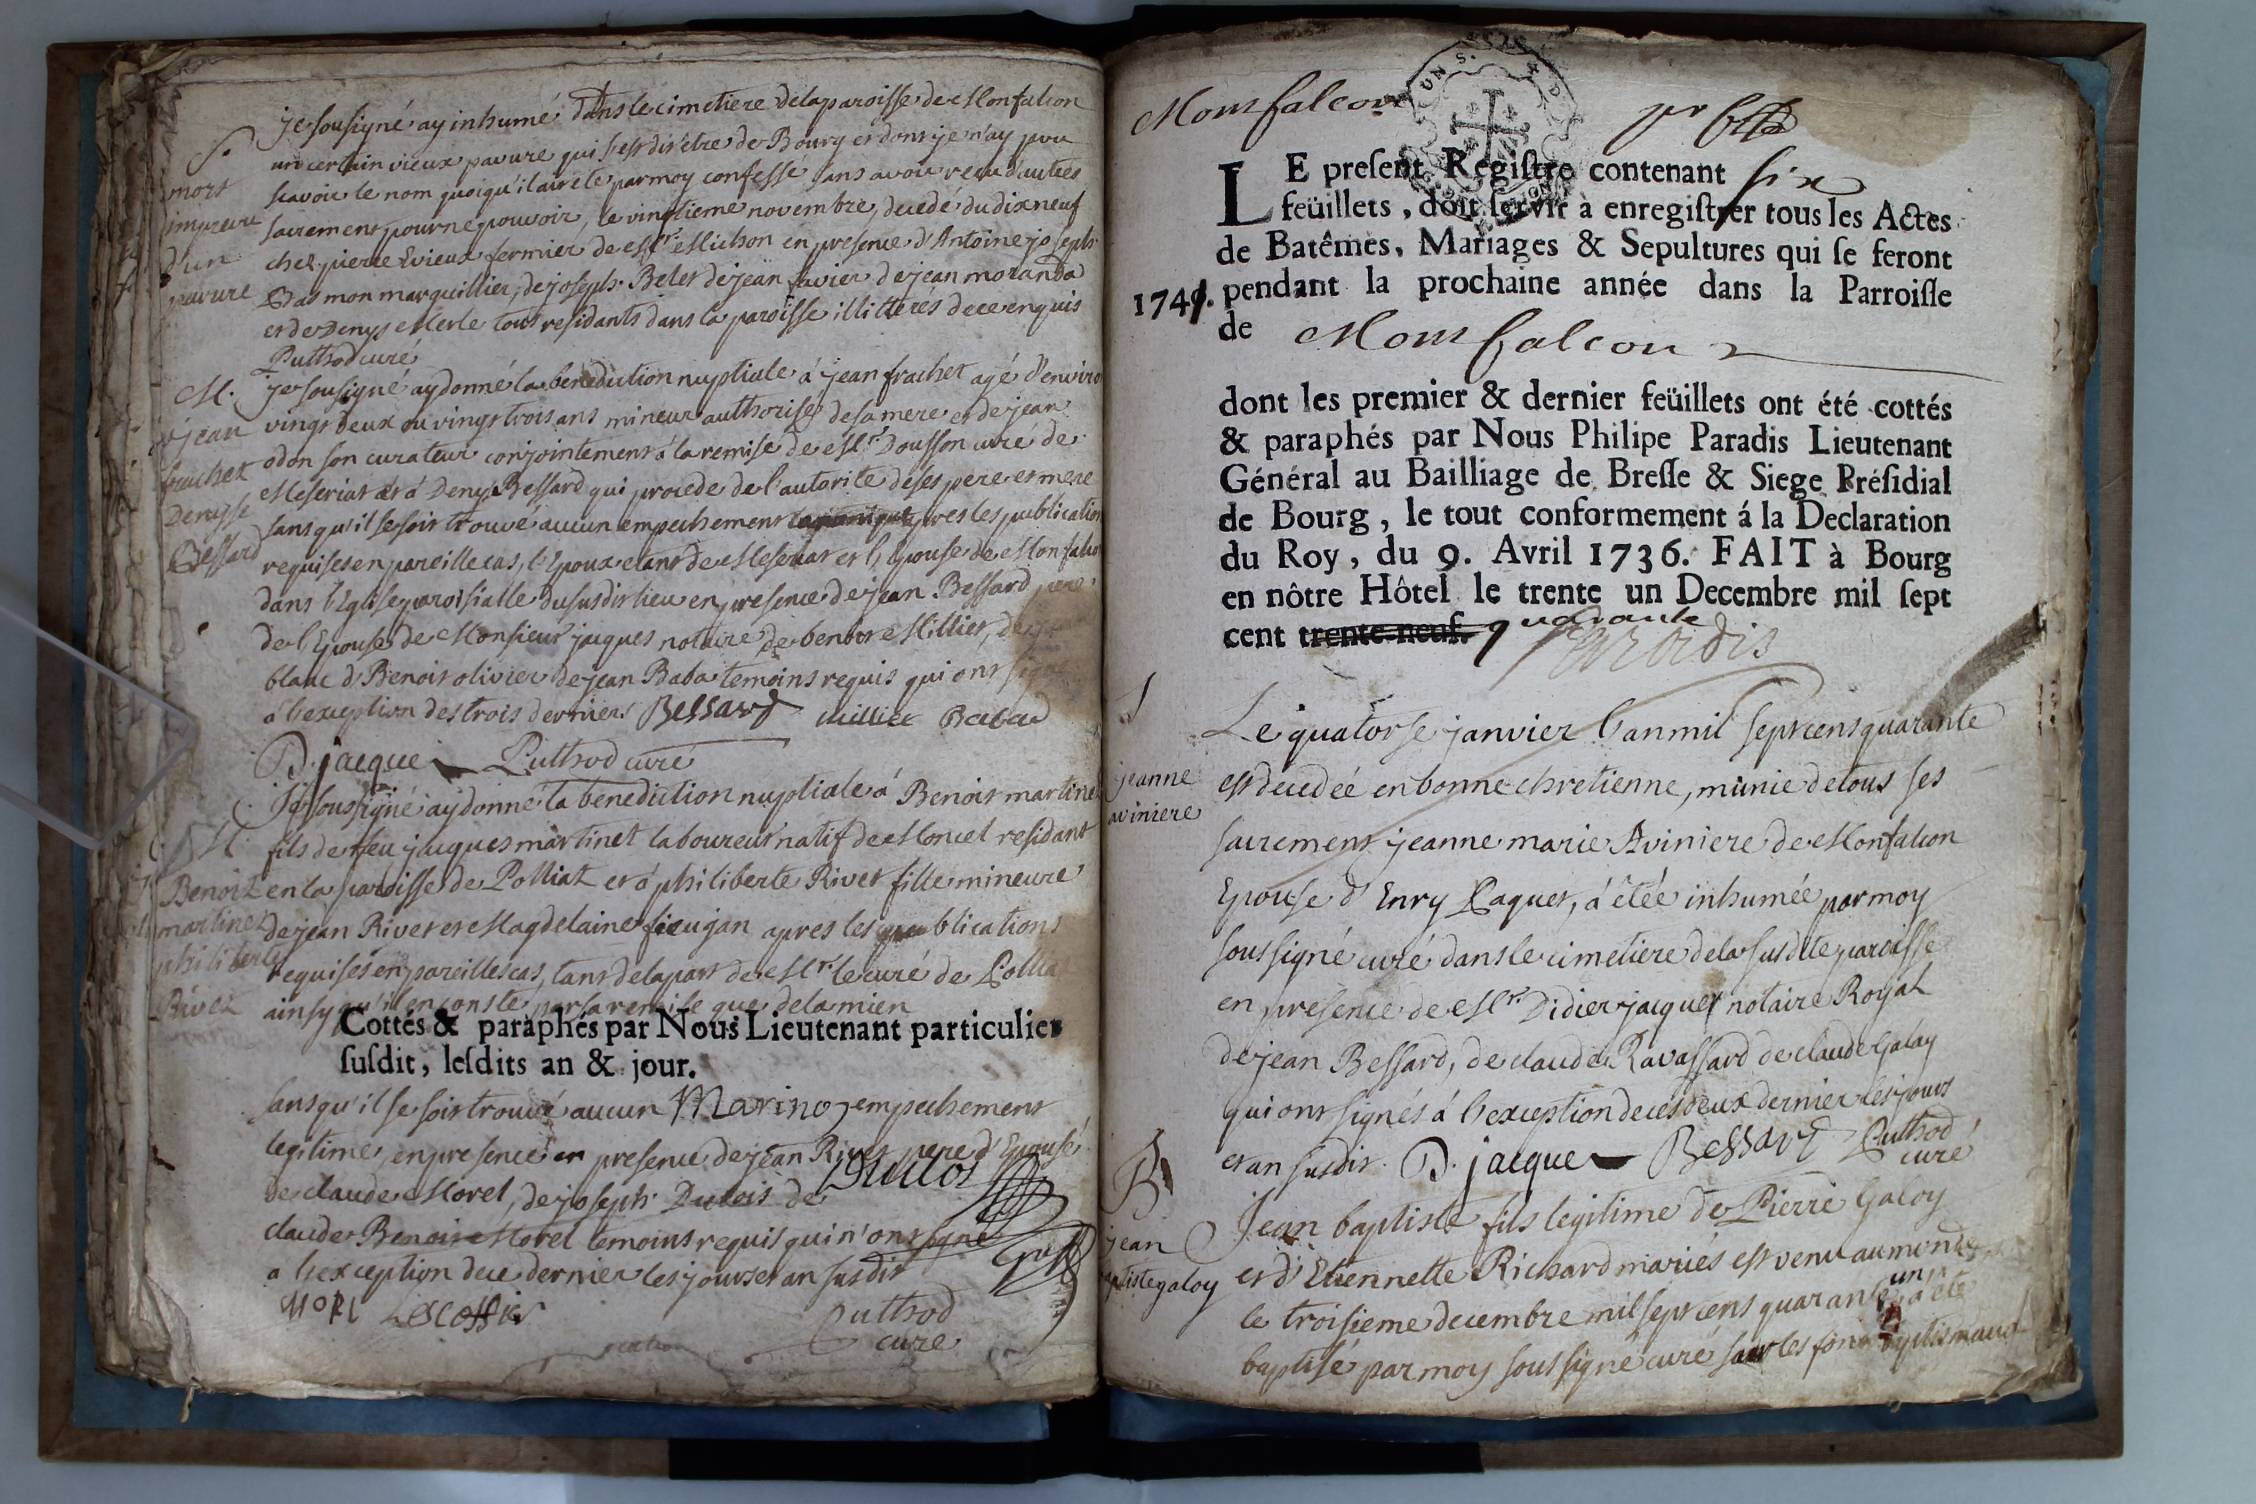 je sousigné ay inhumé dans le cimetiere de la paroisse de Monfalcon
un certain vieux pauure qui s'est dis être de Bourg et dont je n'ay pou
scavoir le nom quoiqu'il ait eté par moy confessé sans avoir recu d'autres
sacrement pour ne pouvoir, le vingtieme novembre, decedé du dix neuf
chez pierre Evieux fermier de Mr. Michon en presence d'Antoine joseph
Damon marguillier, de joseph Belet de jean favier de jean moranda
et de Denys Merle tous residants dans la paroisse illitterés de ce enquis
Puthod curé
S.
mort
impreve
d'un
pauure
je sousigné ay donné la benediction nuptiale á jean frachet agé d'enviro
vingt deux ou vingt trois ans mineur authorisé de sa mere et de jean
odon son curateur conjointement á la remise de Mr. Dousson curé de
Meseriat et á Denyse Bessard qui procede de l'autorite de ses pere et mere
sans qu'il se soit trouvé aucun empechement apres les publication
requises en pareille cas, l'Epoux etant de Meseriat et l'Epouse de Monfalco
dans l'Eglise paroisialle du susdit lieu en presence de jean Bessard pere
de l'Epouse de Monsieur jacques notaire de benoit Millier, de
blanc d'Benoit olivier de jean Baba temoins requis qui ont signé
á l'exception des trois derniers Bessard Millier Babad
D. jacque Puthod curé
M.
jean
frachet
Denyse
Bessard
Je soussigné ay donné la benediction nuptiale á Benoit martinet
fils de feu jacques martinet laboureur natif de Moncel residant
en la paroisse de Polliat et á philiberte Rivet fille mineure
de jean Rivet et Magdelaine fieujan apres les publications
requises en pareilles cas, tant de la part de Mr. le curé de Pollia
ainsy qu'il en conste par sa remise que de la mien
M.
Benoit
martinet
philiberte
Rivet
Cottés & paraphés par Nous Lieutenant particulier
susdit, lesdits an & jour.
sans qu'il se soit trouvé aucun Marinon empechement
legitime, en presence en presence de jean Rivet pere d'Epouse
de claude Morel, de joseph Dulois de Duclos
claude Benoit Morel temoins requis qui n'ont signé
a l'exception de ce dernier les jours et an susdit
MOREL Lescoffier Puthod
curé
Monfalcon
LE present Registre contenant six
feüillets, doit servir à enregistrer tous les Actes
de Batêmes, Mariages & Sepultures qui se feront
1741. pendant la prochaine année dans la Parroisse
de Monfalcon
dont les premier & dernier feüillets ont été cottés
& paraphés par Nous Philipe Paradis Lieutenant
Général au Bailliage de Bresse & Siege Présidial
de Bourg, le tout conformement á la Declaration
du Roy, du 9. Avril 1736. FAIT à Bourg
en nôtre Hôtel le trente un Decembre mil sept
cent trente-neuf. quarante
Paradis
S
jeanne
aviniere
Le quatorse janvier l'an mil sept cens quarante
est decedeé en bonne chretienne, munie de tous ses
sacrement jeanne marie Aviniere de Monfalcon
Epouse d'Enry Paquet, á êtée inhumée par moy
soussigné curé dans le cimetiere de la susdite paroisse
en presence de Mr. Didier jacquet notaire Royal
de jean Bessard, de claude Ravassard de claude Galay
qui ont signés á l'exception de ces deux dernier les jours
et an susdit. D. jacque Bessard Puthod
curé
B
jean
baptiste galoy
Jean baptiste fils legitime de Pierre Galoy
et d'Etiennette Richard mariés est venu au monde
le troisieme decembre mil sept cens quarante un á été
baptisé par moy soussigné curé sur les fons baptismaux